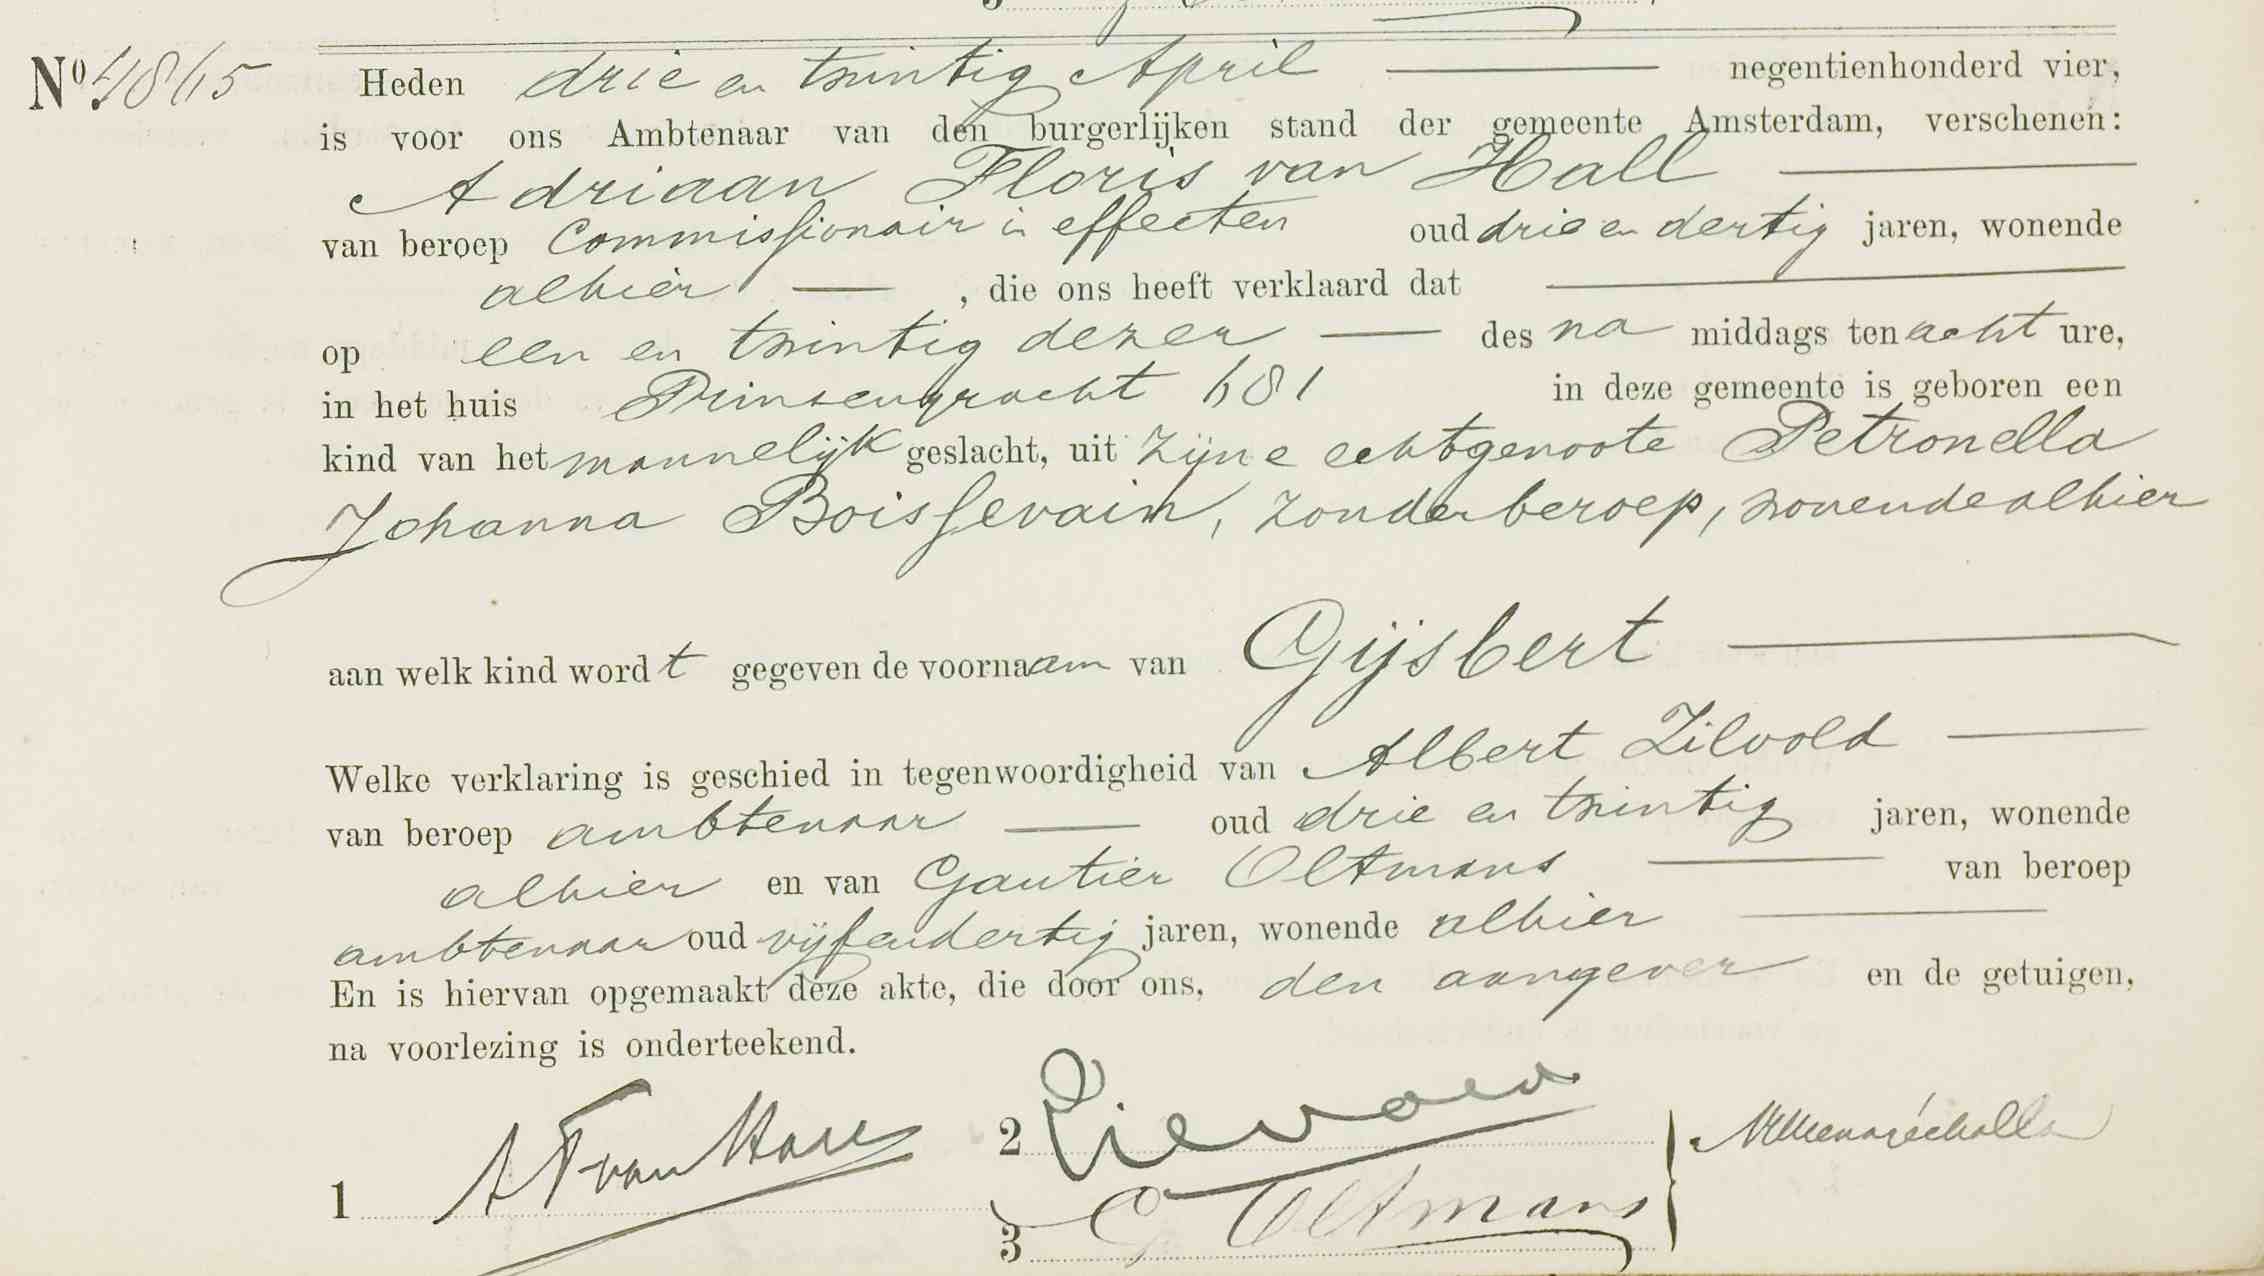 No. 4865 Heden drie en twintig April negentienhonderd vier,
is voor ons Ambtenaar van den burgerlijken stand der gemeente Amsterdam, verschenen:
Adriaan Floris van Hall
van beroep Commissionair in effecten oud drie en dertig jaren, wonende
alhier , die ons heeft verklaard dat
op een en twintig dezer des na middags ten acht ure,
in het huis Prinsengracht 681 in deze gemeente is geboren een
kind van het mannelijk geslacht, uit zijne echtgenoote Petronella
Johanna Boissevain, zonder beroep, wonende alhier
aan welk kind wordt gegeven de voornaam van Gijsbert
Welke verklaring is geschied in tegenwoordigheid van Albert Zilvold
van beroep ambtenaar oud drie en twintig jaren, wonende
alhier en van Gautier Oltmans van beroep
ambtenaar oud vijfendertig jaren, wonende alhier
En is hiervan opgemaakt deze akte, die door ons, den aangever en de getuigen,
na voorlezing is onderteekend.
1 AF van Hall
2 Zilvold
3 G Oltmans